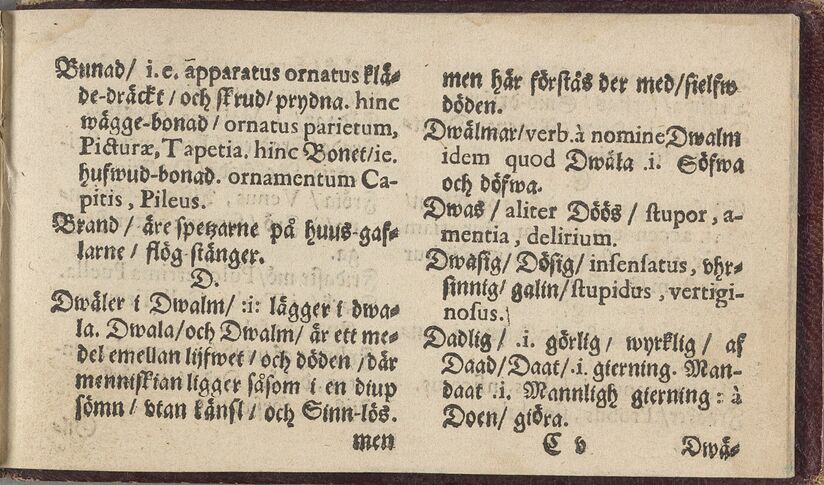 Bunad/ i.e. apparatus ornatus klä-
de-dräckt / och skrud/ prydna. hinc
wägge-bonad / ornatus parietum,
Picturæ, Tapetia. hinc Bonet/ie.
hufwud-bonad. ornamentum Ca-
pitis, Pileus.
Brand / äre spetzarne på huus-gaf-
larne / flög-stänger.
D.
Dwäler i Dwalm/ :i: lägger i dwa-
la. Dwala/och Dwalm/ är ett me-
del emellan lijfwet / och döden /där
menniskian ligger såsom i en diup
sömn / vtan känsl / och Sinn-lös.
men
men här förstås der med/sielfw
döden.
Dwälmar/verb.à nomine Dwalm
idem quod Dwäla .i. Söfwa
och döfwa.
Dwas / aliter Döös / stupor, a-
mentia, delirium.
Dwasig/ Dösig/ insensatus, vhr-
sinnig/ galin/stupidus, vertigi-
nosus.
Dadlig / .i. görlig / wyrklig / af
Daad/Daat/.i. gierning. Man-
daat .i. Mannligh gierning : à
Doen/ giöra.
C v
Dwä-